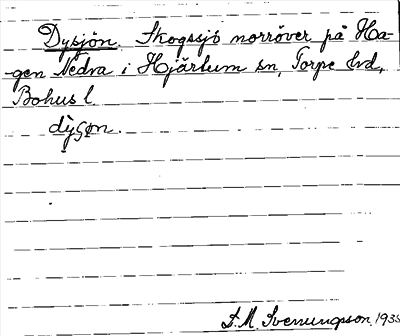 Dysjön. Skogssjö norröver på Ha-
gen Nedra i Hjärtum sn, Torpe hd,
Bohus l
dyʂo̤n.
S. M. Svenungsson. 1935